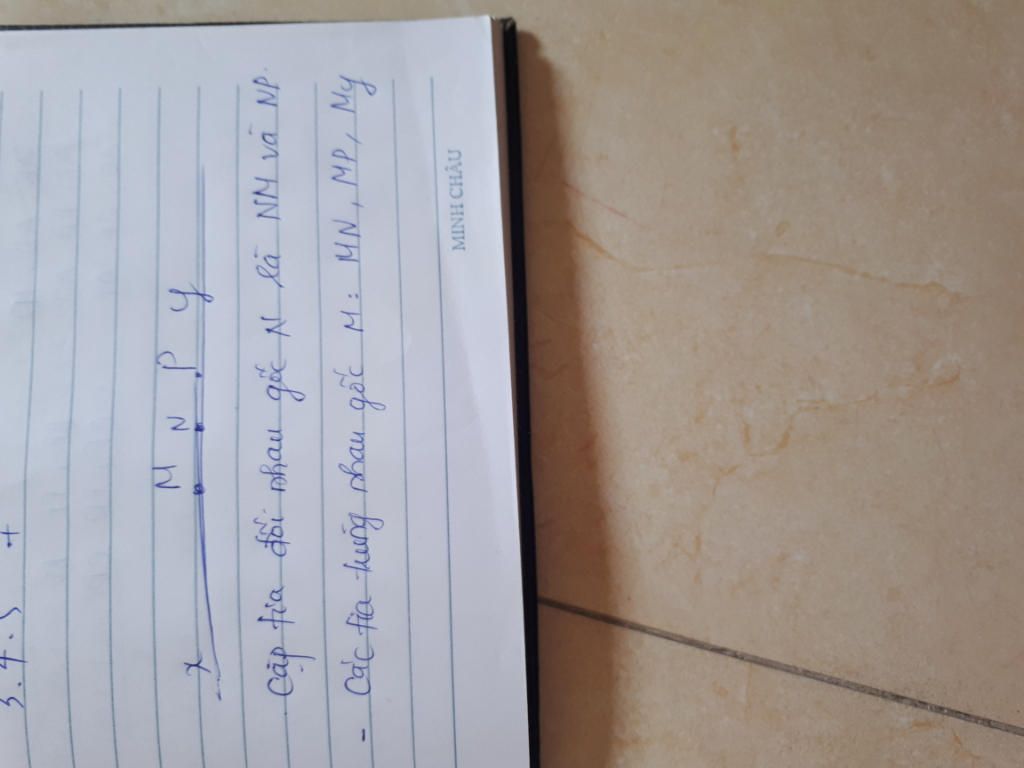 M N P y
x
Cặp tia đối nhau gốc N là NM và NP.
- Các tia trùng nhau gốc M: MN, MP, My
MINH CHÂU